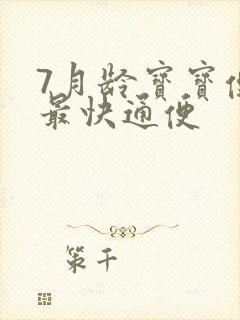 7月龄宝宝便
最快通便
策千